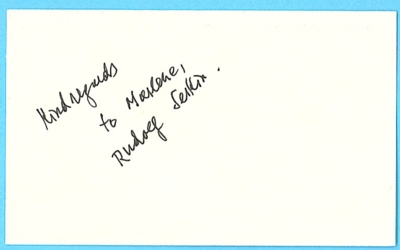 Kind regards
to Marlene,
Rudolf Serkin.